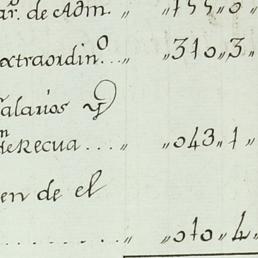 ar. de Adm. „ „155„0„
extraordin.º „ „310„3„
Salarios y
de Recua.... „ „043„1„
en de el
......... „ „010„4„